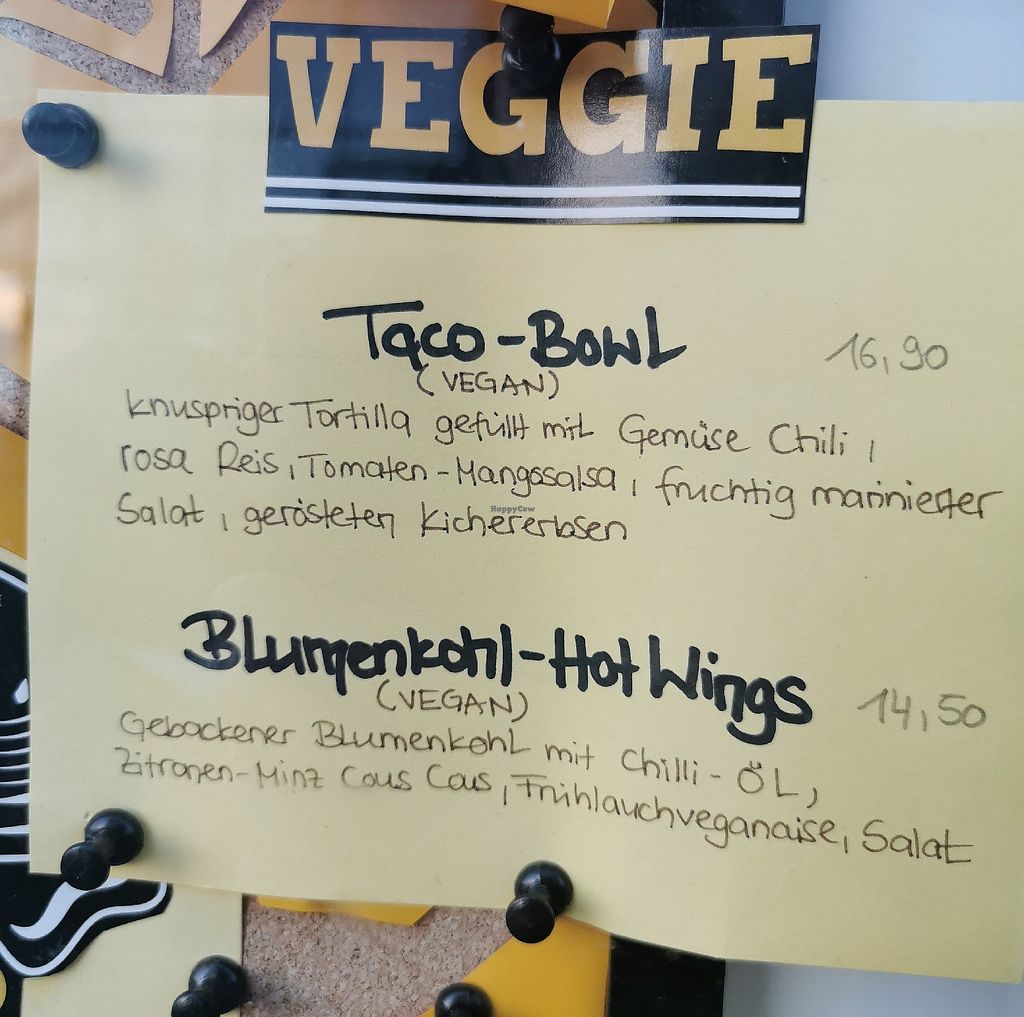 VEGGIE
Taco-Bowl
16,90
(VEGAN)
knuspriger Tortilla gefüllt mit Gemüse Chili,
rosa Reis, Tomaten-Mangosalsa, fruchtig marinierter
Salat, gerösteten Kichererbsen
HappyCow
Blumenkohl-Hot Wings
14,50
(VEGAN)
Gebackener Blumenkohl mit Chilli-Öl,
Zitronen-Minz Cous Cous, Frühlauchveganaise, Salat